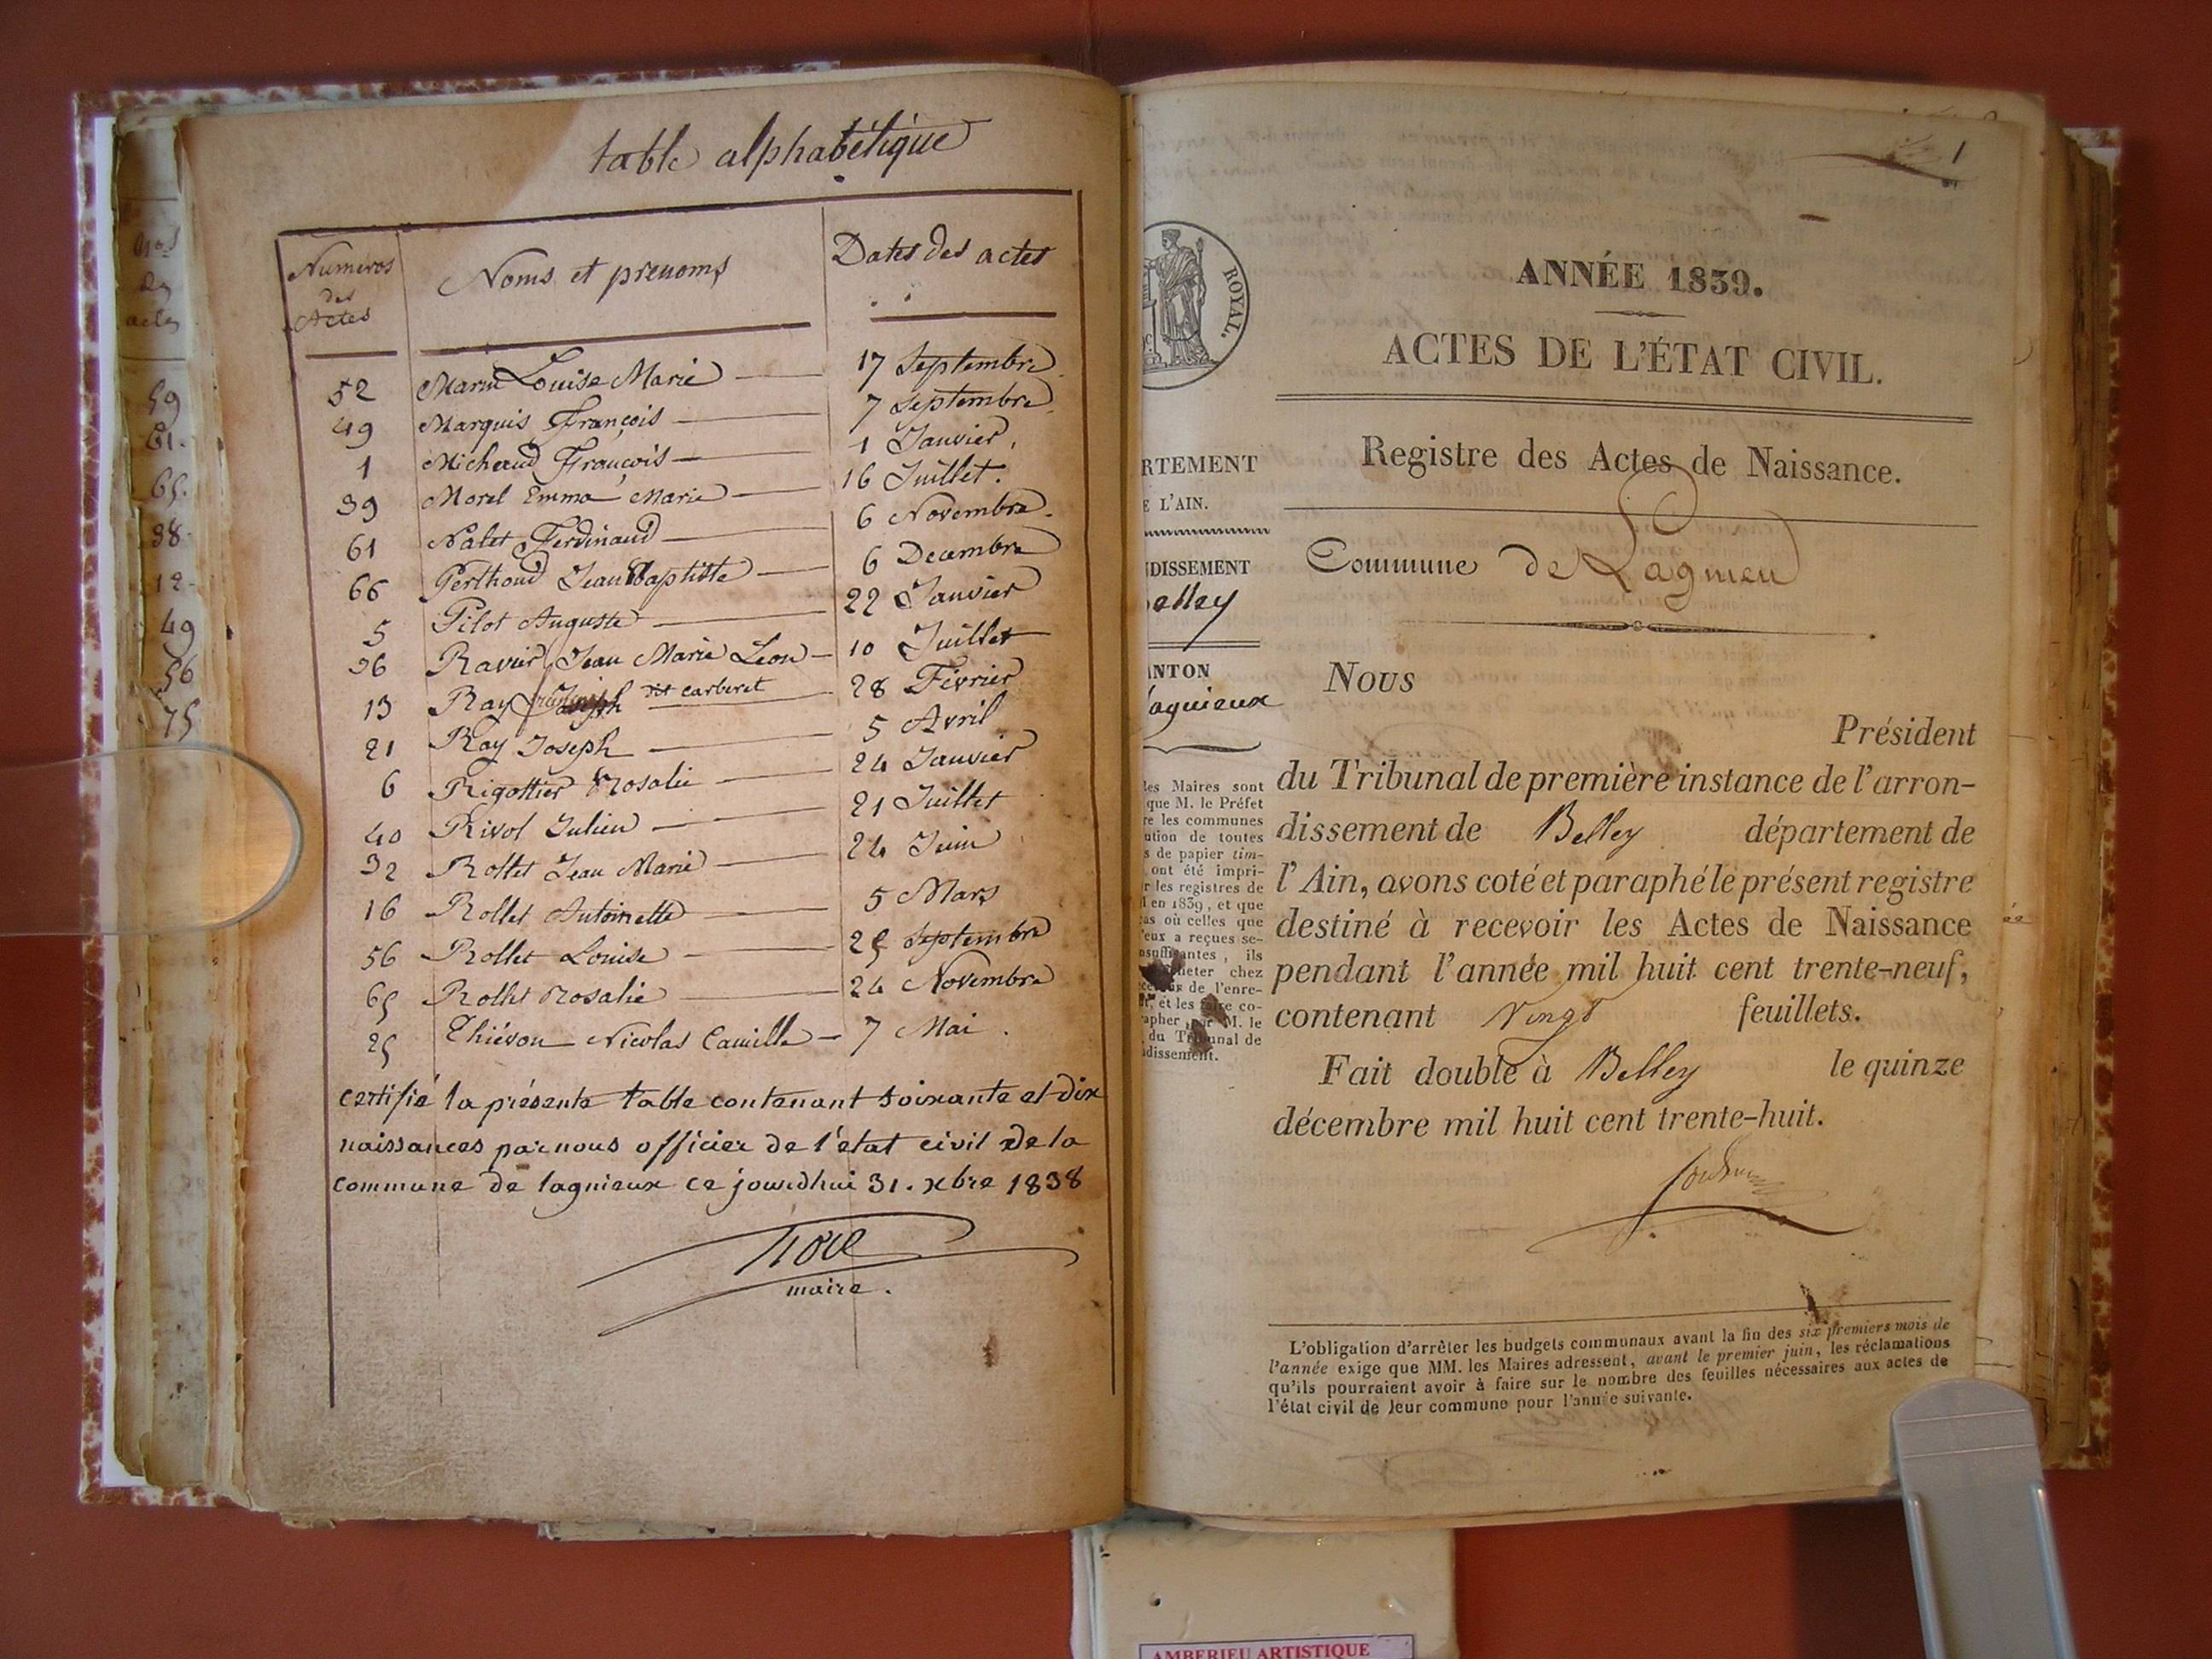 table alphabétique
Numeros des Actes
Noms et prenoms
Dates des actes
52 Marin Louise Marie 17 Septembre
49 Marquis François 7 Septembre
1 Michaud François 1 Janvier
39 Morel Emma Marie 16 Juillet
61 Nalet Ferdinand 6 Novembre
66 Perthoud Jean Baptiste 6 Decembre
5 Pilot Auguste 22 Janvier
36 Ravier Jean Marie Leon 10 Juillet
13 Ray dit carberet 28 Février
21 Ray Joseph 5 Avril
6 Rigottier Rosalie 24 Janvier
40 Rivol Julien 21 Juillet
32 Rollet Jean Marie 24 Juin
16 Rollet Antoinette 5 Mars
56 Rollet Louise 25 Septembre
65 Rollet Rosalie 24 Novembre
25 Thiévon Nicolas Camille 7 Mai
certifié la présente table contenant soixante et dix
naissances par nous officier de l'état civil de la
commune de lagnieux ce jourdhui 31. xbre 1838
maire.
59
61.
65.
38
12
49
56
75
1
ROYAL.
RTEMENT
E L'AIN.
DISSEMENT
elley
ANTON
agnieux
les Maires sont
que M. le Préfet
re les communes
ution de toutes
s de papier tim-
ont été impri-
r les registres de
l en 1839, et que
as où celles que
eux a reçues se-
nsuffisantes, ils
heter chez
de l'enre-
, et les faire co-
apher, par M. le
du Tribunal de
dissement.
ANNÉE 1839.
ACTES DE L'ÉTAT CIVIL.
Registre des Actes de Naissance.
Commune de Lagnieu
Nous
Président
du Tribunal de première instance de l'arron-
dissement de Belley département de
l'Ain, avons coté et paraphé le présent registre
destiné à recevoir les Actes de Naissance
pendant l'année mil huit cent trente-neuf,
contenant Vingt feuillets.
Fait double à Belley le quinze
décembre mil huit cent trente-huit.
L'obligation d'arrêter les budgets communaux avant la fin des six premiers mois de
l'année exige que MM. les Maires adressent, avant le premier juin, les réclamations
qu'ils pourraient avoir à faire sur le nombre des feuilles nécessaires aux actes de
l'état civil de leur commune pour l'année suivante.
AMBERIEU ARTISTIQUE